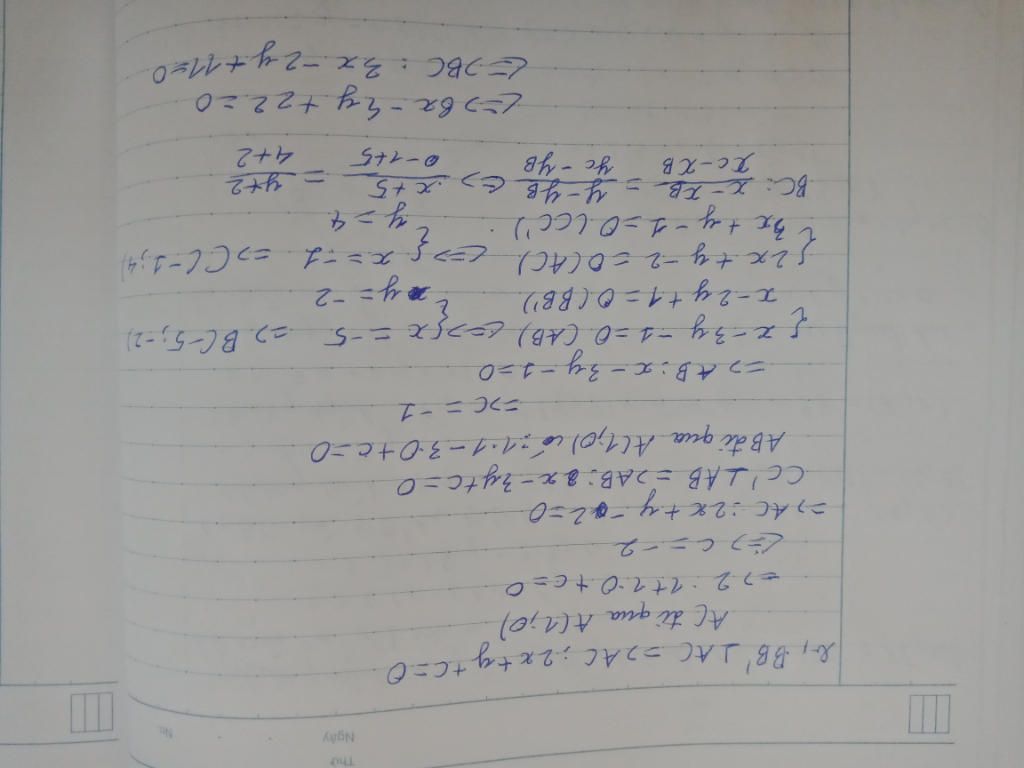 Thứ
Ngày
No.
2, BB' ⊥ AC => AC : 2x + y + c = 0
AC đi qua A(1;0)
=> 2 . 1 + 1 . 0 + c = 0
<=> c = -2
=> AC : 2x + y - 2 = 0
CC' ⊥ AB => AB : x - 3y + c = 0
AB đi qua A(1;0) có : 1.1 - 3.0 + c = 0
=> c = -1
=> AB : x - 3y - 1 = 0
{ x - 3y - 1 = 0 (AB) <=> { x = -5 => B(-5; -2)
x - 2y + 1 = 0 (BB') y = -2
{ 2x + y - 2 = 0 (AC) <=> { x = -1 => C(-1; 4)
3x + y - 1 = 0 (CC') y = 4
BC : (x - xB)/(xC - xB) = (y - yB)/(yC - yB) <=> (x + 5)/(-1 + 5) = (y + 2)/(4 + 2)
<=> 6x - 4y + 22 = 0
<=> BC : 3x - 2y + 11 = 0